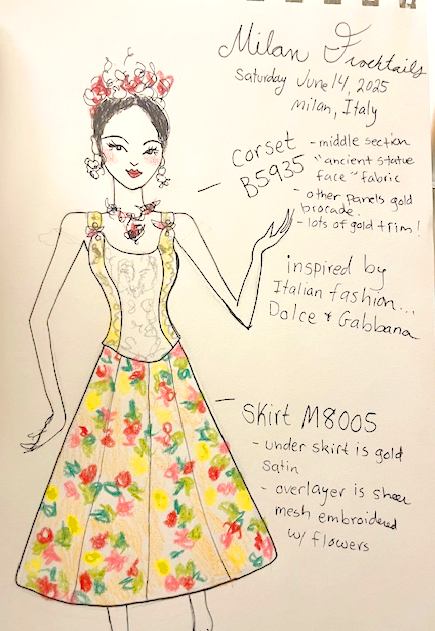 Milan Frocktails
Saturday June 14, 2025
Milan, Italy
Corset
B5935
- middle section
"ancient statue
face" fabric
- other panels gold
brocade.
- lots of gold trim!
inspired by
Italian fashion...
Dolce & Gabbana
Skirt M8005
- under skirt is gold
satin
- overlayer is sheer
mesh embroidered
w/ flowers